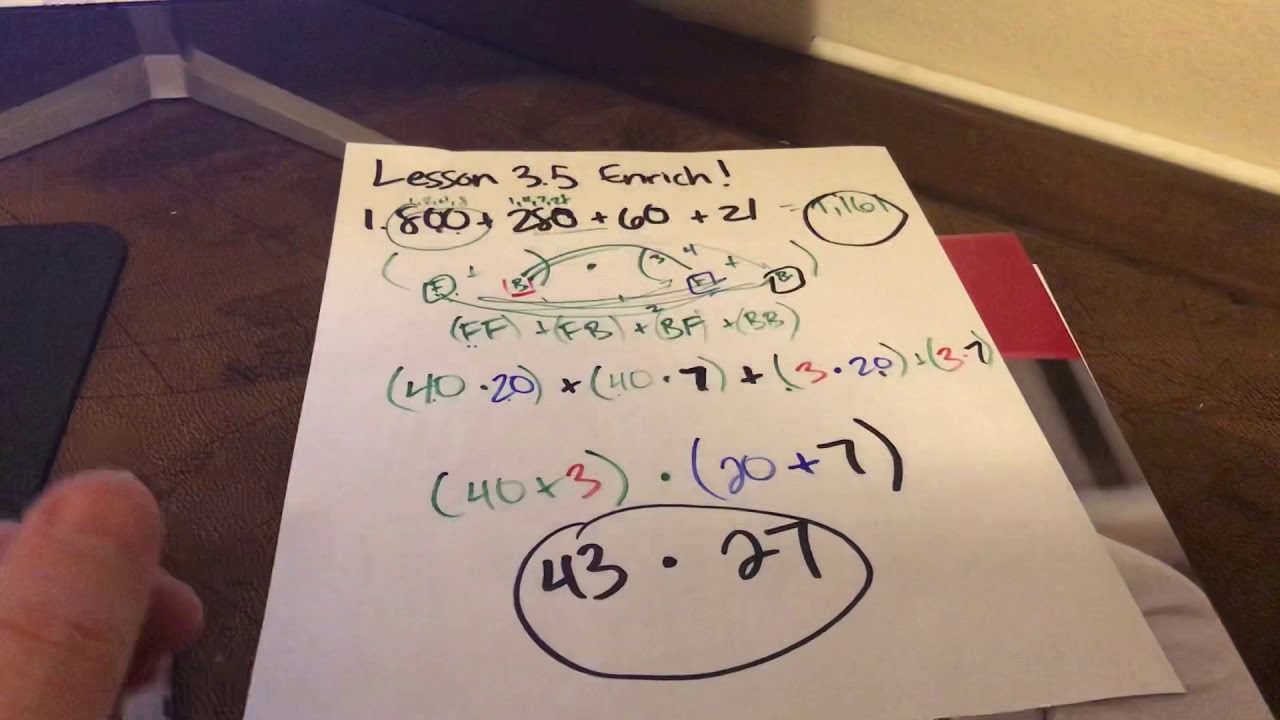 Lesson 3.5 Enrich!
1. 800 + 280 + 60 + 21 = 1,161
(F + B) • (F + B)
(FF) + (FB) + (BF) + (BB)
(40 • 20) + (40 • 7) + (3 • 20) + (3 • 7)
(40 + 3) • (20 + 7)
43 • 27